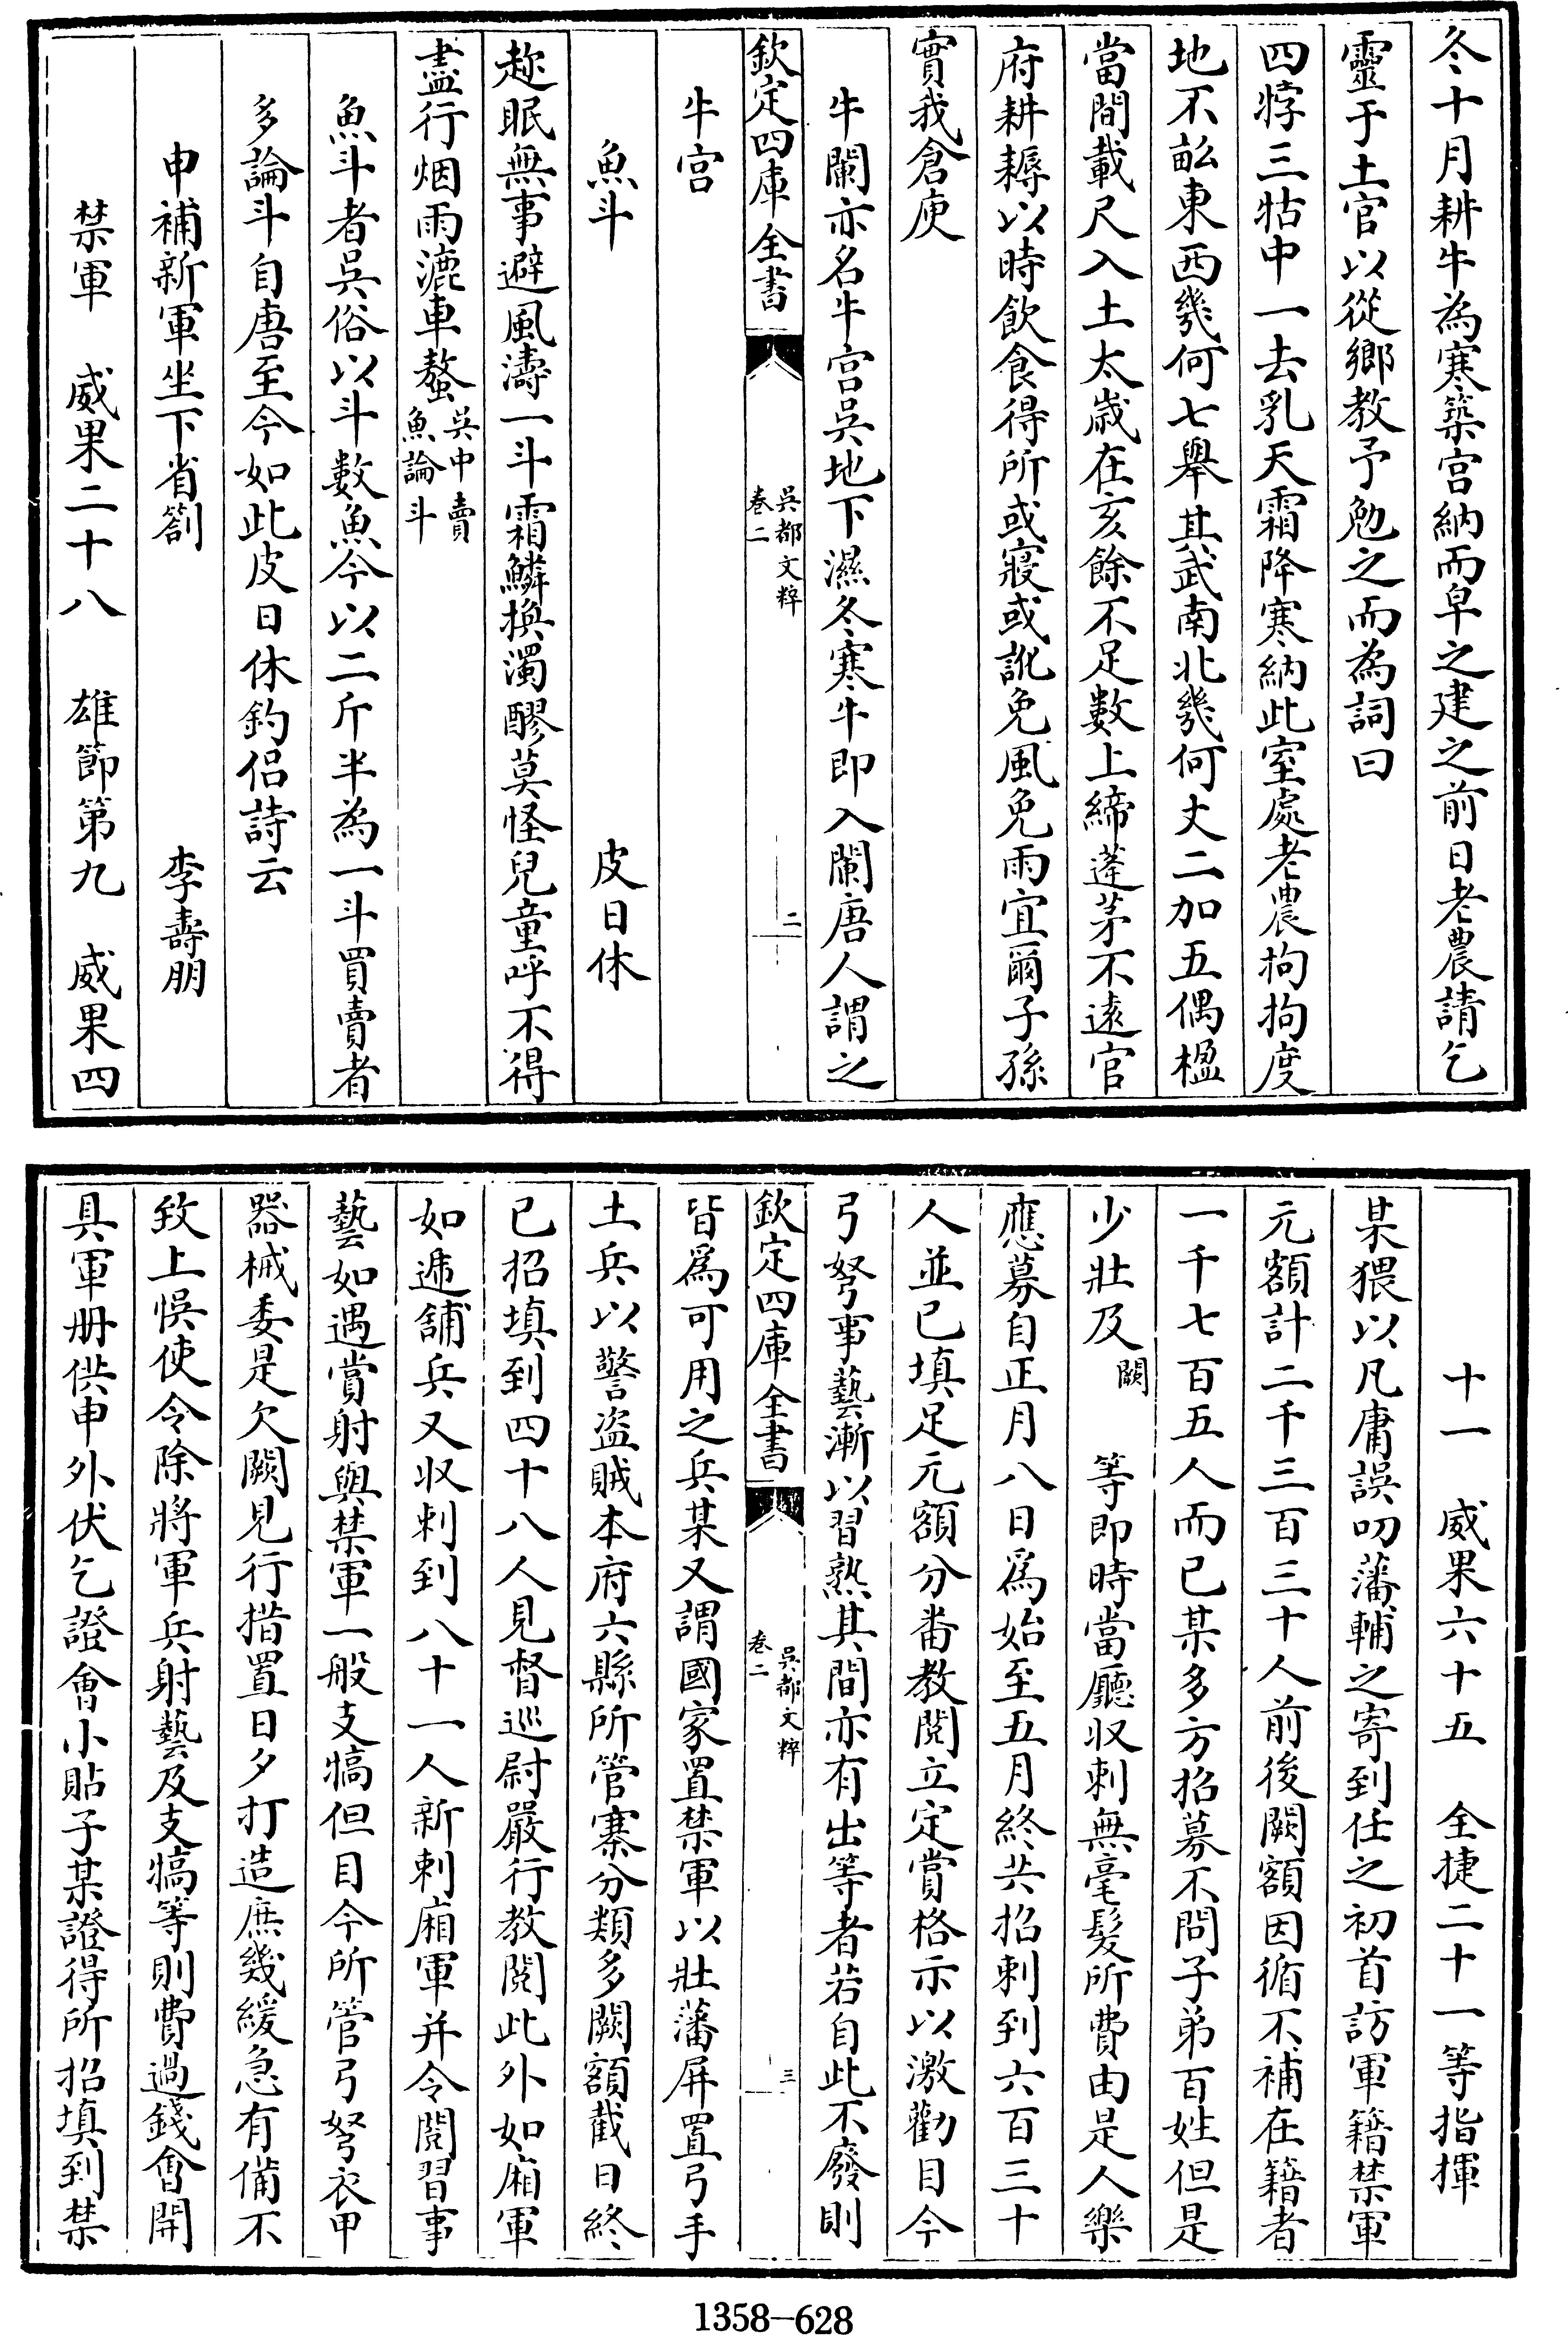 冬十月耕牛為寒築宫納而皁之建之前日老農請乞
靈于土官以從鄉教予勉之而為詞曰
四牸三牯中一去乳天霜降寒納此室處老農拘拘度
地不畝東西幾何七舉其武南北幾何丈二加五偶楹
當間載尺入土太歳在亥餘不足數上締蓬茅不逺官
府耕耨以時飲食得所或寢或訛免風免雨宜爾子孫
實我倉庾
牛闌亦名牛宫吳地下濕冬寒牛即入闌唐人謂之
欽定四庫全書
吳都文粹
卷二
二
牛宫
魚斗
皮日休
趂眠無事避風濤一斗霜鱗換濁醪莫怪兒童呼不得
盡行烟雨漉車螯吳中賣魚論斗
魚斗者吳俗以斗數魚今以二斤半為一斗買賣者
多論斗自唐至今如此皮日休釣侣詩云
申補新軍坐下省劄
李壽朋
禁軍　威果二十八　雄節第九　威果四
十一　威果六十五　全捷二十一等指揮
某猥以凡庸誤叨藩輔之寄到任之初首訪軍籍禁軍
元額計二千三百三十人前後闕額因循不補在籍者
一千七百五人而已某多方招募不問子弟百姓但是
少壯及闕　等即時當廳収刺無毫髮所費由是人樂
應募自正月八日爲始至五月終共招刺到六百三十
人並已填足元額分番教閱立定賞格示以激勸目今
弓弩事藝漸以習熟其間亦有出等者若自此不廢則
欽定四庫全書
吳都文粹
卷二
三
皆爲可用之兵某又謂國家置禁軍以壯藩屏置弓手
土兵以警盜賊本府六縣所管寨分類多闕額截日終
已招填到四十八人見督巡尉嚴行教閱此外如廂軍
如遞舗兵又収刺到八十一人新刺廂軍并令閱習事
藝如遇賞射與禁軍一般支犒但目今所管弓弩衣甲
器械委是欠闕見行措置日夕打造庶幾緩急有備不
致上悞使令除將軍兵射藝及支犒等則費過錢會開
具軍册供申外伏乞證會小貼子某證得所招填到禁
1358-628